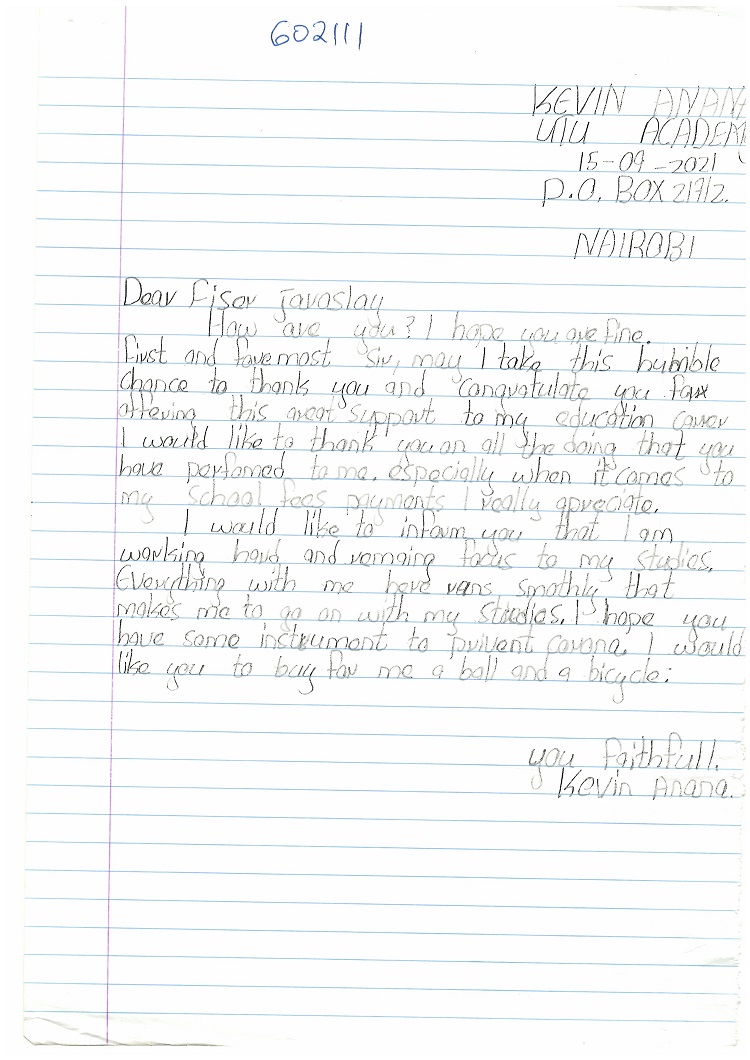 602111
KEVIN ANAN
UTU ACADEM
15-09-2021
P.O. BOX 21712.
NAIROBI
Dear Fiser javoslay
How are you? I hope you are fine.
First and foremost Sir, may I take this humble
chance to thank you and congratulate you for
offering this great support to my education career
I would like to thank you on all the doing that you
have perfomed to me. especially when it comes to
my school fees payments I really apreciate.
I would like to inform you that I am
working hard and remaing focus to my studies.
Everything with me here rans smothly that
makes me to go on with my studies. I hope you
have some instrument to privent corona. I would
like you to buy for me a ball and a bicycle:
you faithfull.
Kevin Anana.